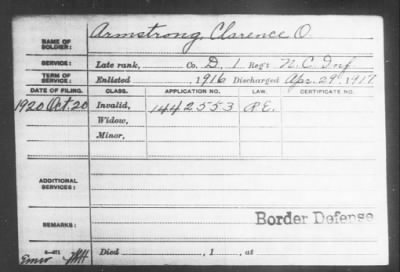 NAME OF SOLDIER: Armstrong, Clarence O.
SERVICE: Late rank, Co. D, 1 Reg't N.C. Inf
TERM OF SERVICE: Enlisted , 1916 Discharged Apr. 29, 1917
DATE OF FILING. CLASS. APPLICATION NO. LAW. CERTIFICATE NO.
1920 Oct. 20 Invalid, 1442553 P.E.
Widow,
Minor,
ADDITIONAL SERVICES:
REMARKS: Border Defense
Died , 1 , at